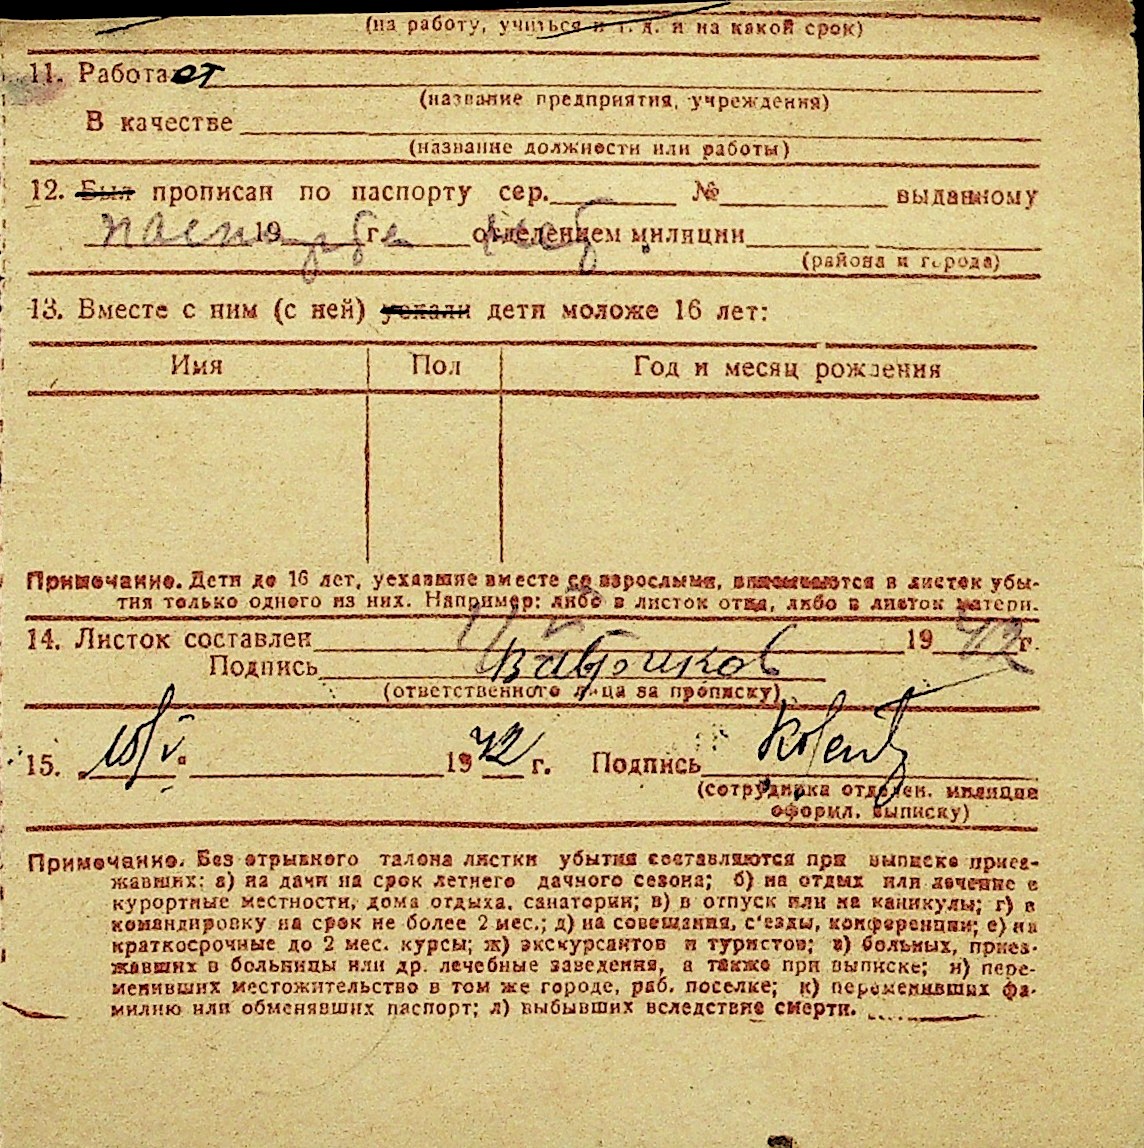 (на работу, учиться и т. д. и на какой срок)
11. Работает
(название предприятия, учреждения)
В качестве
(название должности или работы)
12. Был прописан по паспорту сер. № выданному
19 г. отделением милиции
(района и города)
13. Вместе с ним (с ней) уехали дети моложе 16 лет:
Имя Пол Год и месяц рождения
Примечание. Дети до 16 лет, уехавшие вместе со взрослыми, вписываются в листок убы-
тия только одного из них. Например: либо в листок отца, либо в листок матери.
14. Листок составлен 19 42 г.
Подпись
(ответственного лица за прописку)
15. 10/V 1942 г. Подпись
(сотрудника отделен. милиции
оформл. выписку)
Примечание. Без отрывного талона листки убытия составляются при выписке приез-
жавших: а) на дачи на срок летнего дачного сезона; б) на отдых или лечение в
курортные местности, дома отдыха, санатории; в) в отпуск или на каникулы; г) в
командировку на срок не более 2 мес.; д) на совещания, с'езды, конференции; е) на
краткосрочные до 2 мес. курсы; ж) экскурсантов и туристов; з) больных, приез-
жавших в больницы или др. лечебные заведения, а также при выписке; и) пере-
менивших местожительство в том же городе, раб. поселке; к) переменивших фа-
милию или обменявших паспорт; л) выбывших вследствие смерти.